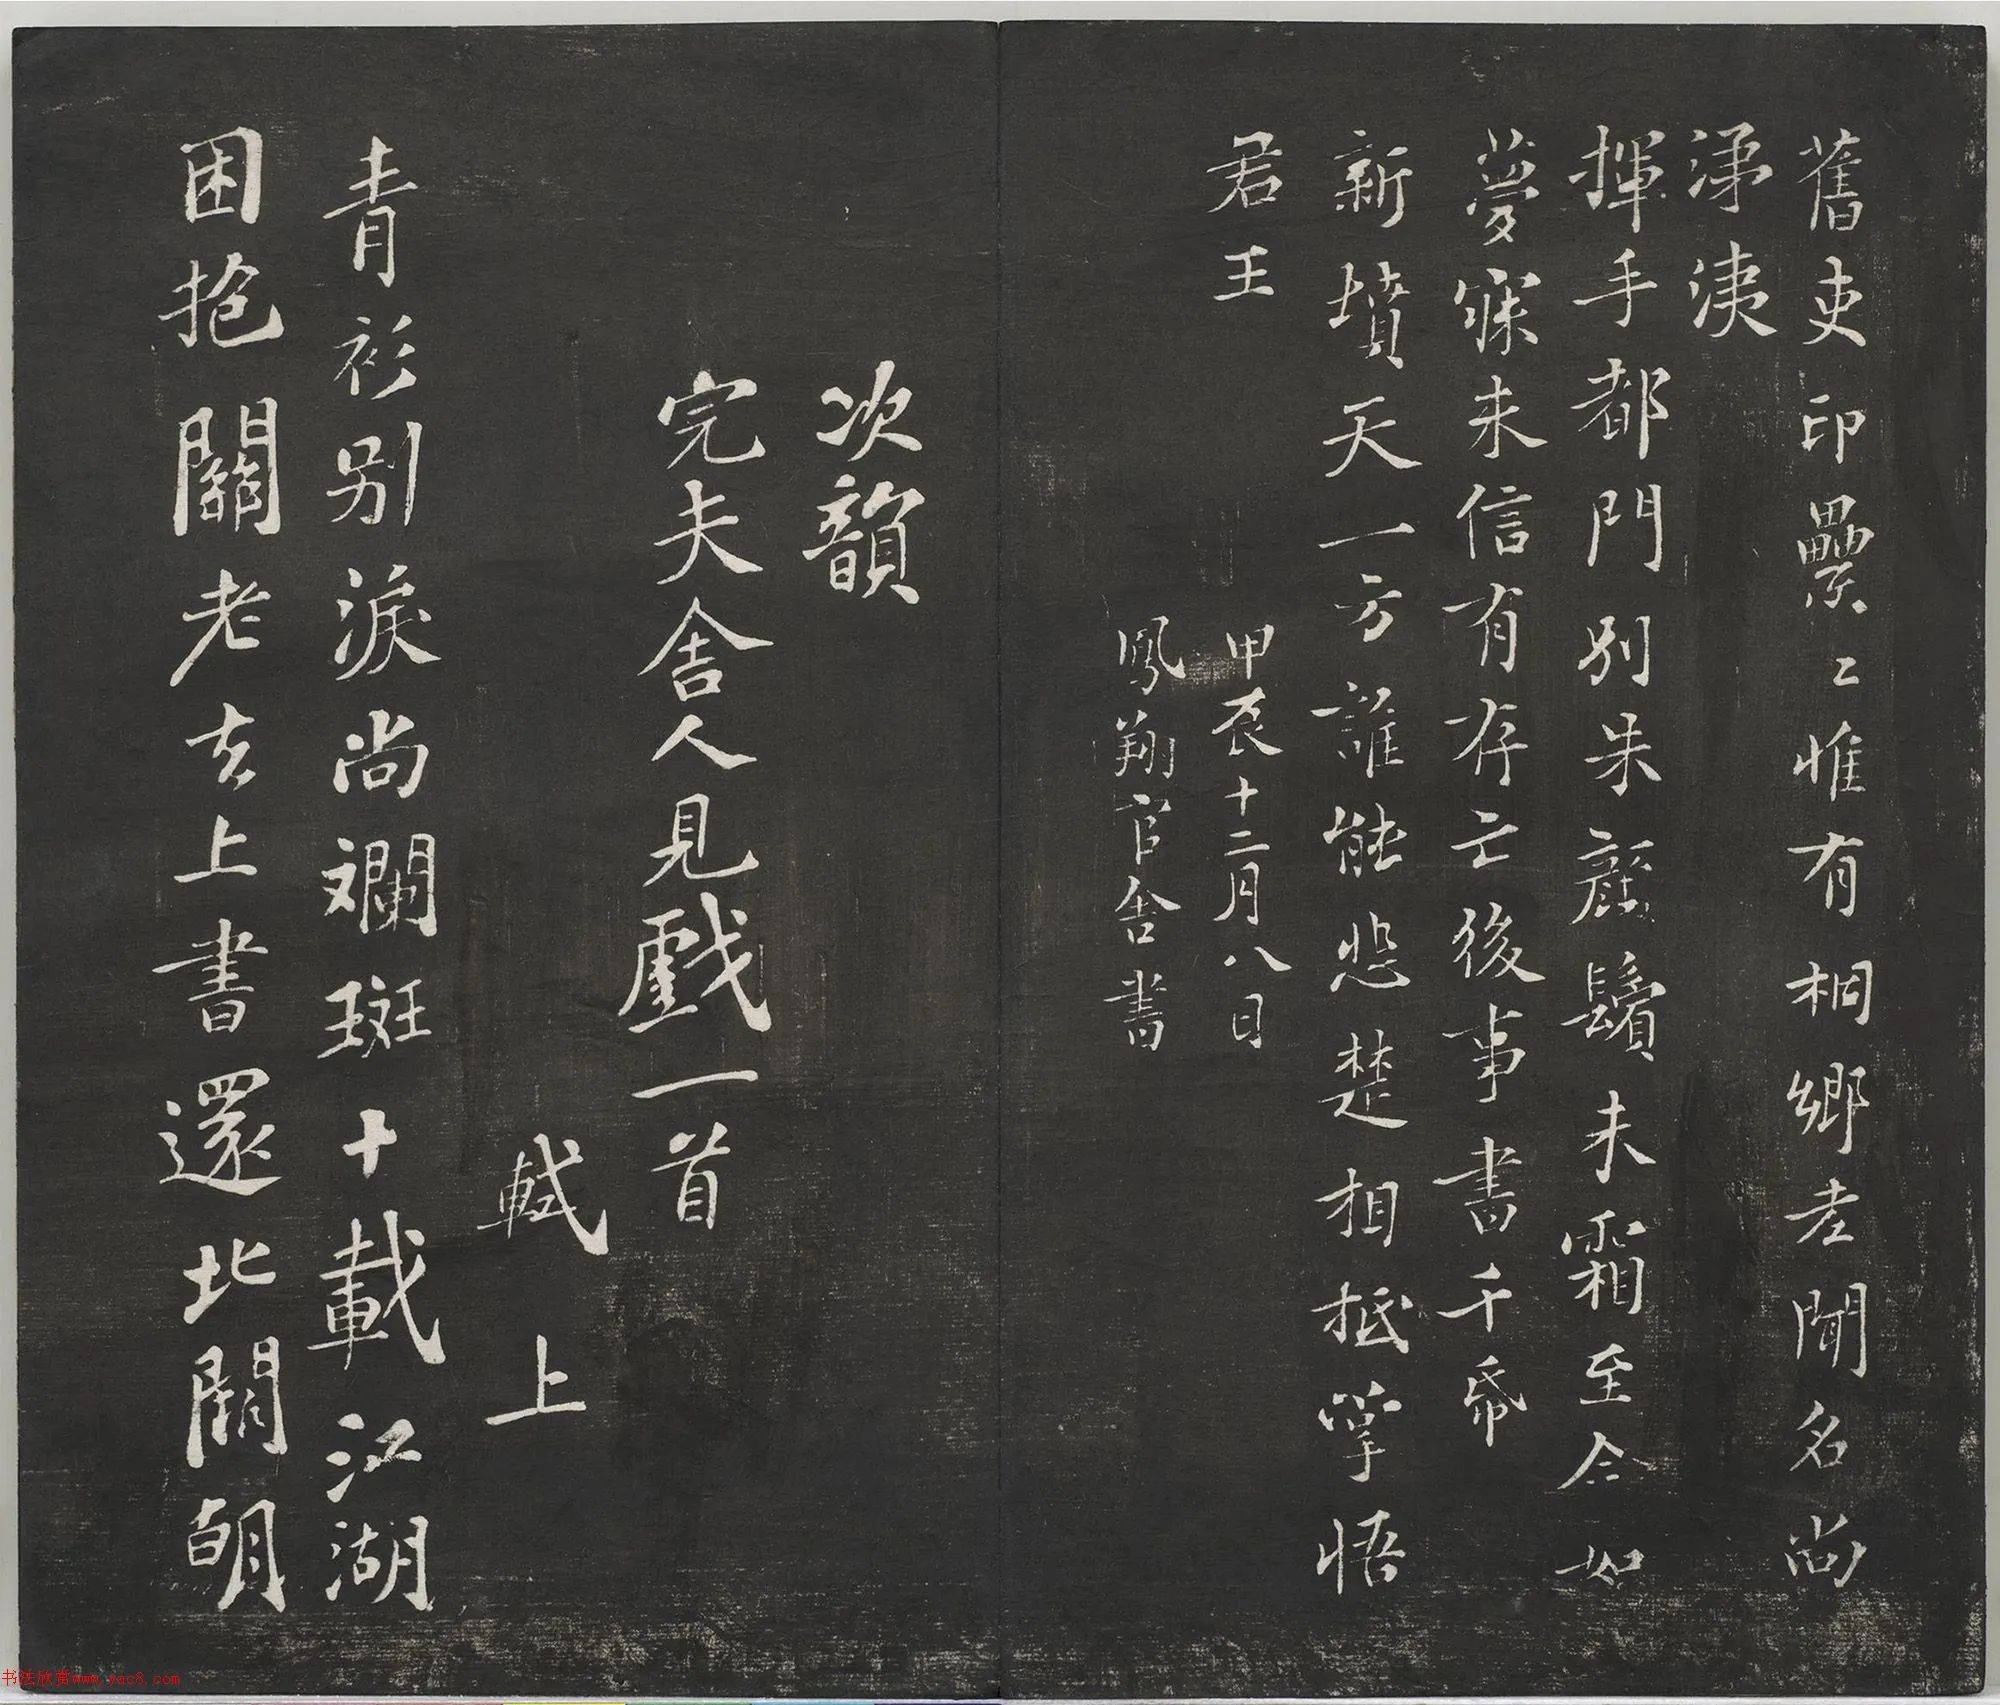 舊吏印纍纍惟有桐鄉老聞名尚
涕洟
揮手都門別朱顏鬢未霜至今如
夢寐未信有存亡後事書千帋
新墳天一方誰能悲楚相抵掌悟
君王
甲辰十二月八日
鳳翔官舍書
次韻
完夫舍人見戲一首
軾上
青衫別淚尚斕斑十載江湖
困抱關老去上書還北闕朝
书法欣赏www.yac8.com